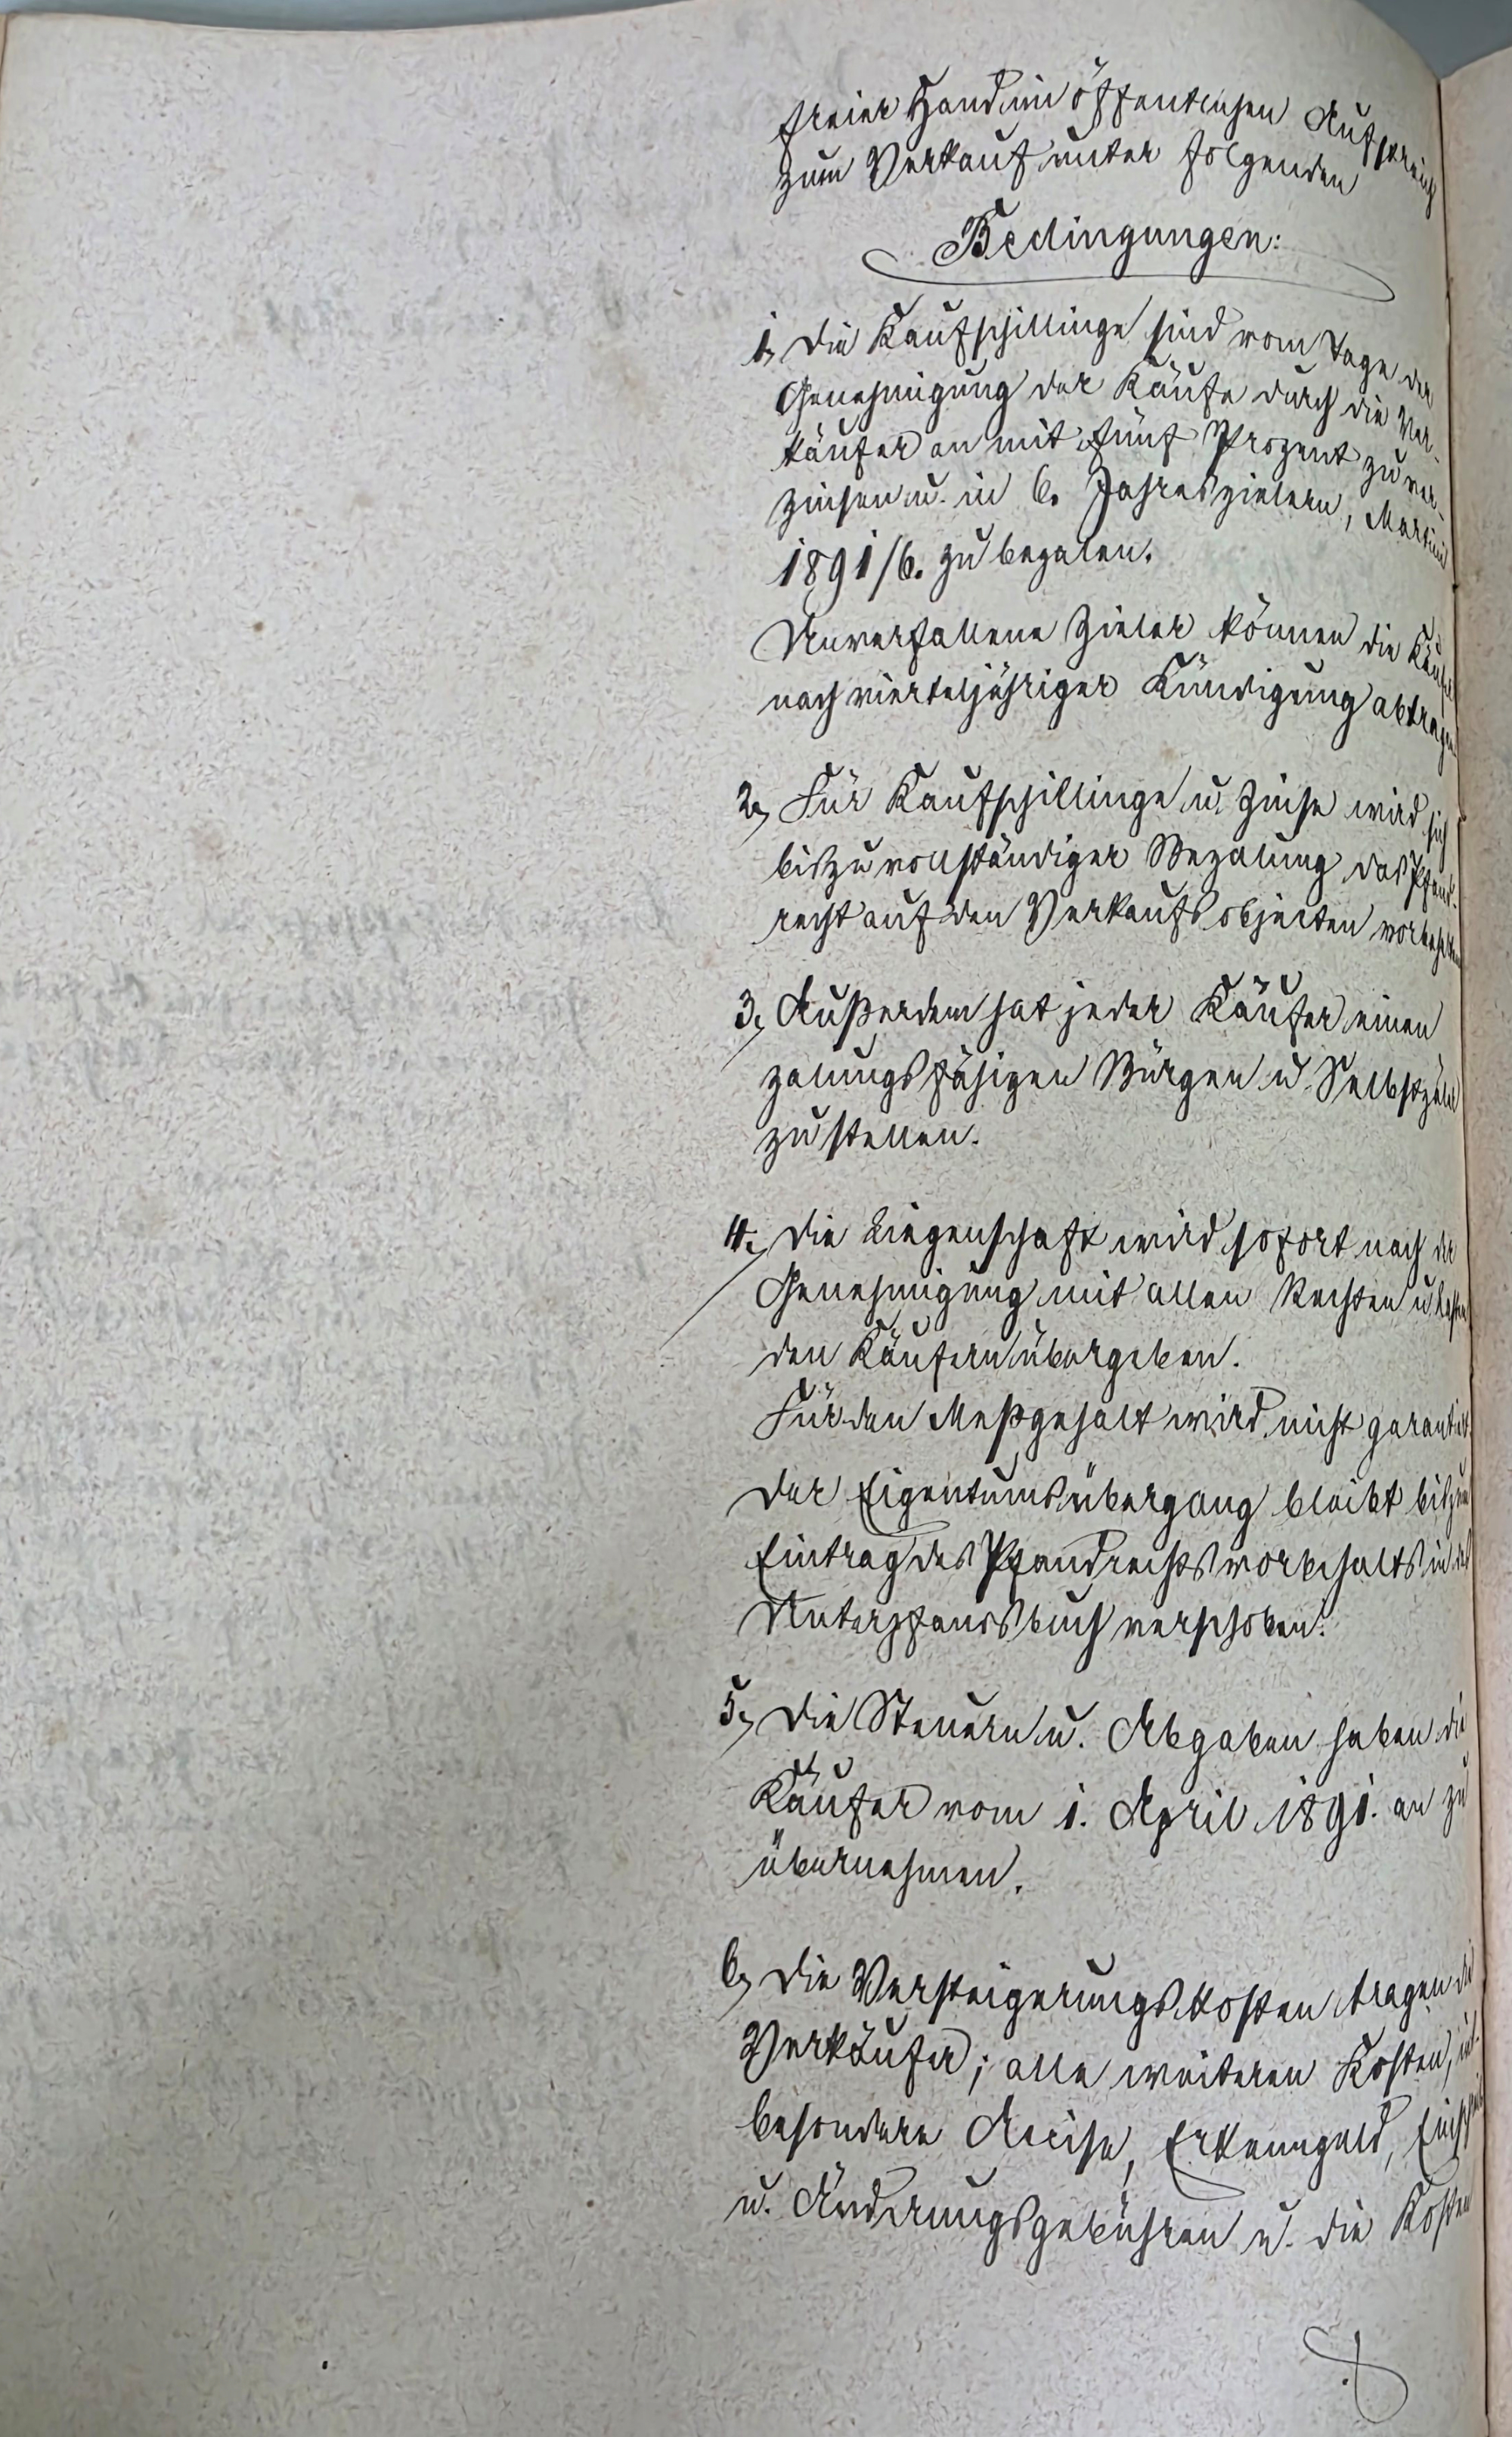 freier Hand im öffentlichen Aufstreich
zum Verkauf unter folgenden
Bedingungen:
1, Die Kaufschillinge sind vom Tage der
Genehmigung der Käufe durch die Ver-
käufer an mit fünf Prozent zu ver-
zinsen u. in 6. Jahreszielern, Martini
1891/6. zu bezalen.
Unverfallene Zieler können die Käufer
nach vierteljähriger Kündigung abtragen
2, Für Kaufschillinge u. Zinse wird sich
bis zu vollständiger Bezalung das Pfand-
recht auf den Verkaufsobjecten vorbehalten
3, Außerdem hat jeder Käufer einen
zalungsfähigen Bürgen u. Selbstzaler
zu stellen.
4., Die Liegenschaft wird sofort nach der
Genehmigung mit allen Rechten u. Lasten
den Käufern übergeben.
Für den Meßgehalt wird nicht garantirt.
Der Eigentumsübergang bleibt bis zum
Eintrag des Pfandrechtsvorbehalts in das
Unterpfandsbuch verschoben.
5, Die Steuern u. Abgaben haben die
Käufer vom 1. April 1891. an zu
übernehmen.
6, Die Versteigerungskosten tragen die
Verkäufer; alle weiteren Kosten, ins-
besondere Accise, Erkenngeld,
u. Änderungsgebühren u. die Kosten